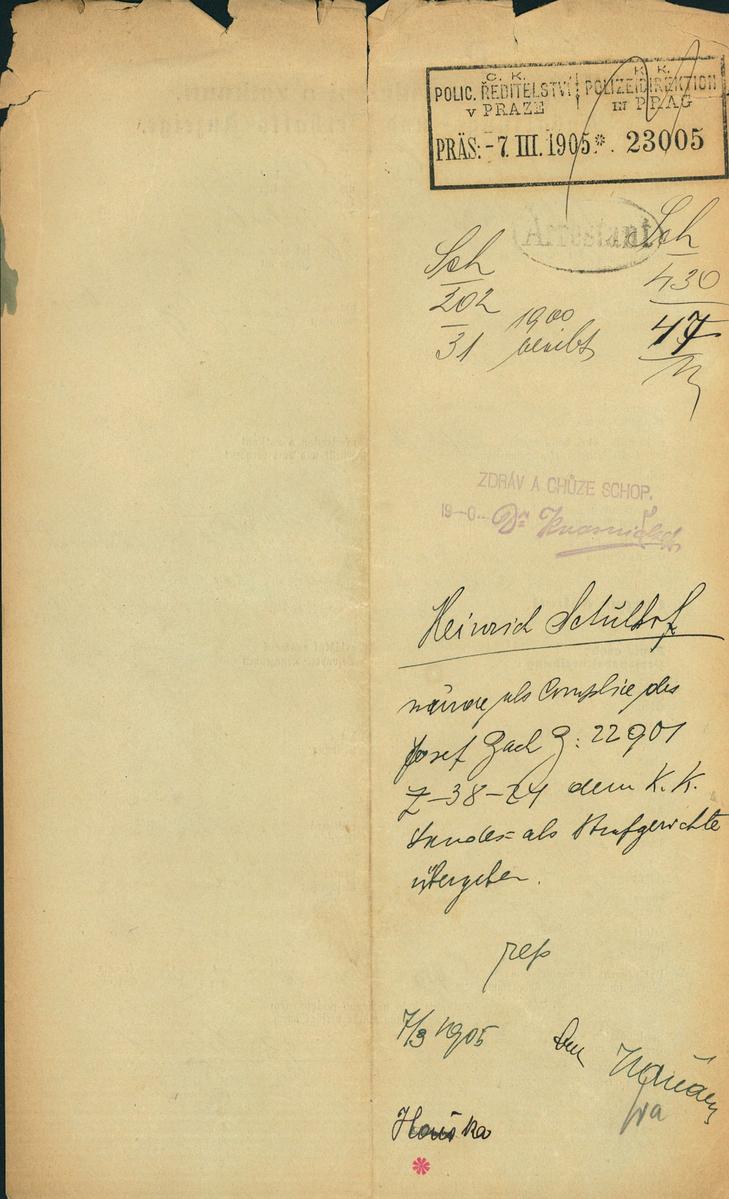 C. K. K. K.
POLIC. ŘEDITELSTVÍ POLIZEIDIREKTION
V PRAZE IN PRAG
PRÄS: -7. III. 1905 * . 23005
(Arrestant)
Sch
202
31
1900
Sch
430
47
ZDRÁV A CHŮZE SCHOP.
19-0.. Dr
Heinrich Schulhof
wurde als Complice des
Josef Zach Z: 22901
Z-38-24 dem K. K.
Landes= als Strafgerichte
übergeben.
rep
7/3 1905
Houška